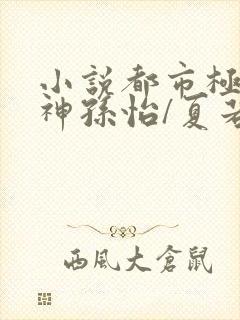 小說都市極
神孫怡/夏若
西風大倉鼠